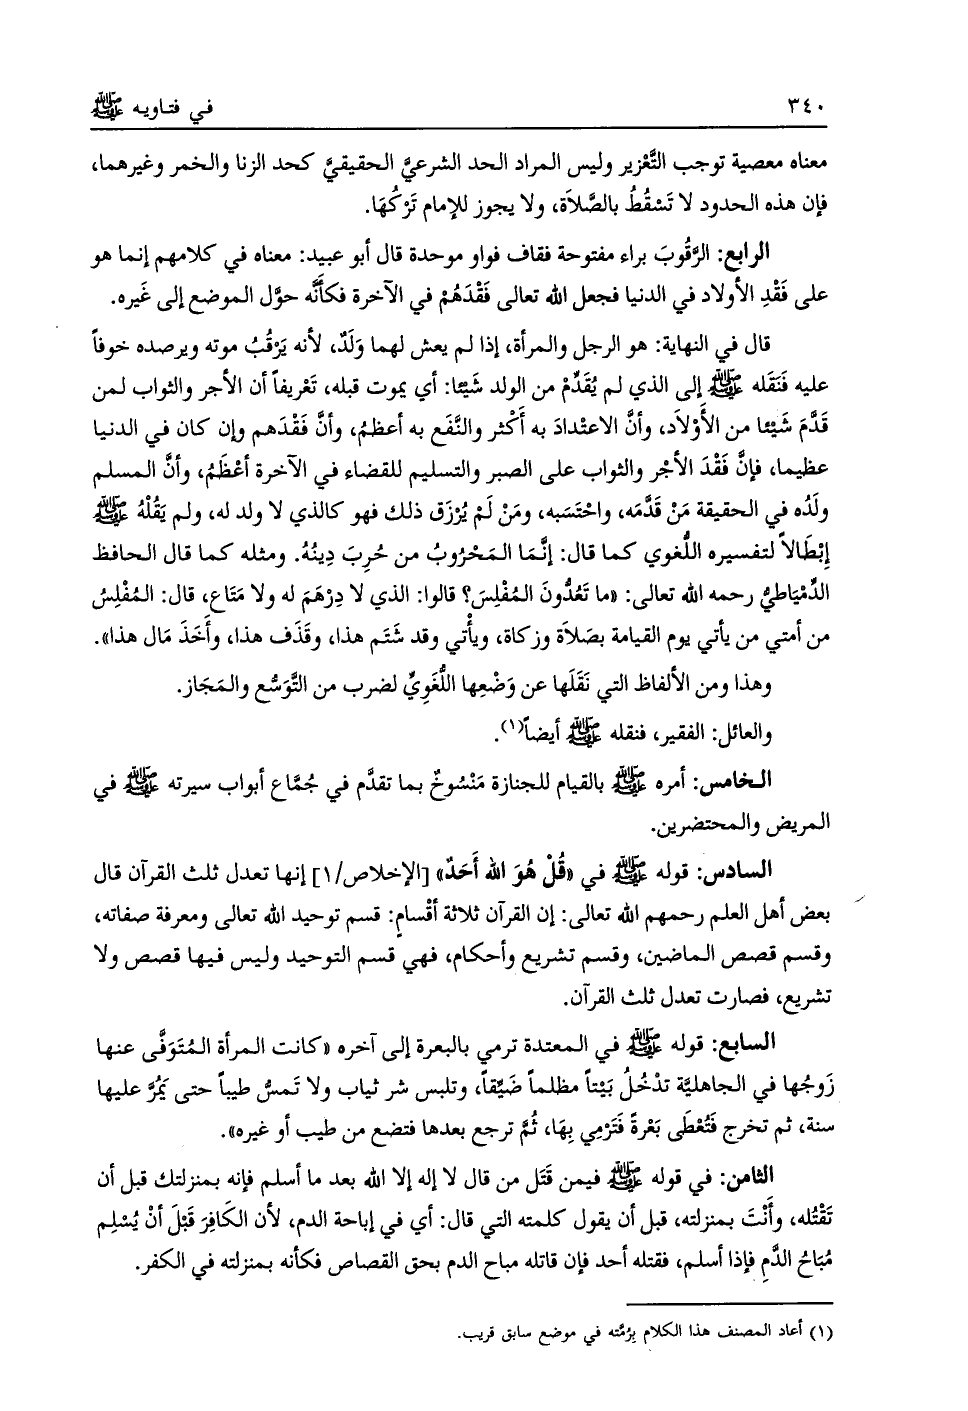 ٣٤٠
في فتاويه ﷺ
معناه معصية توجب التَّعْزير وليس المراد الحد الشرعيَّ الحقيقيَّ كحد الزنا والخمر وغيرهما،
فإن هذه الحدود لا تَسْقُطُ بالصَّلاَة، ولا يجوز للإمام تَرْكُهَا.
الرابع: الرَّقُوبَ براء مفتوحة فقاف فواو موحدة قال أبو عبيد: معناه في كلامهم إنما هو
على فَقْدِ الأولاد في الدنيا فجعل الله تعالى فَقْدَهُمْ في الآخرة فكأَنَّه حوَّل الموضع إلى غَيره.
قال في النهاية: هو الرجل والمرأة، إذا لم يعش لهما وَلَدٌ، لأنه يَرْقُبُ موته ويرصده خوفاً
عليه فَنَقَله ﷺ إلى الذي لم يُقَدِّمْ من الولد شَيْئا: أي يموت قبله، تَعْريفاً أن الأجر والثواب لمن
قَدَّمَ شَيْئا من الأَوْلاَد، وأنَّ الاعْتدادَ به أَكْثر والنَّفَع به أعظمُ، وأنَّ فَقْدَهم وإن كان في الدنيا
عظيما، فإنَّ فَقْدَ الأجْر والثواب على الصبر والتسليم للقضاء في الآخرة أعْظَمُ، وأنَّ المسلم
ولَدُه في الحقيقة مَنْ قَدَّمَه، واحْتَسَبه، ومَنْ لَمْ يُرْزَق ذلك فهو كالذي لا ولد له، ولم يَقُلْهُ ﷺ
إبْطَالاً لتفسيره اللُّغوي كما قال: إنَّمَا المَحْرُوبُ من حُرِبَ دِينُهُ. ومثله كما قال الحافظ
الدِّمْيَاطيُّ رحمه الله تعالى: «ما تَعُدُّونَ المُفْلِسَ؟ قالوا: الذي لا دِرْهَمَ له ولا مَتَاع، قال: المُفْلِسُ
من أمتي من يأتي يوم القيامة بصَلاَة وزكاة، ويأْتي وقد شَتَم هذا، وقَذَف هذا، وأَخَذَ مَال هذا».
وهذا ومن الألفاظ التي نَقَلَها عن وَضْعِها اللُّغَوِيِّ لضرب من التَّوَسُّع والمَجَاز.
والعائل: الفقير، فنقله ﷺ أيضاً(١).
الخامس: أمره ﷺ بالقيام للجنازة مَنْسُوخٌ بما تقدَّم في جُمَّاع أبواب سيرته ﷺ في
المريض والمحتضرين.
السادس: قوله ﷺ في «قُلْ هُوَ الله أَحَدٌ» [الإخلاص/١] إنها تعدل ثلث القرآن قال
بعض أهل العلم رحمهم الله تعالى: إن القرآن ثلاثة أقْسام: قسم توحيد الله تعالى ومعرفة صفاته،
وقسم قصص الماضين، وقسم تشريع وأحكام، فهي قسم التوحيد وليس فيها قصص ولا
تشريع، فصارت تعدل ثلث القرآن.
السابع: قوله ﷺ في المعتدة ترمي بالبعرة إلى آخره «كانت المرأة المُتَوَفَّى عنها
زَوجُها في الجاهليَّة تدْخُلُ بَيْتاً مظلماً ضَيِّقاً، وتلبس شر ثياب ولا تَمسُّ طيباً حتى يَمُرَّ عليها
سنة، ثم تخرج فَتُعْطَى بَعْرةً فَتَرْمِي بِهَا، ثُمَّ ترجع بعدها فتضع من طيب أو غيره».
الثامن: في قوله ﷺ فيمن قَتَل من قال لا إله إلا الله بعد ما أسلم فإنه بمنزلتك قبل أن
تَقْتُله، وأَنْتَ بمنزلته، قبل أن يقول كلمته التي قال: أي في إباحة الدم، لأن الكَافِرَ قَبْلَ أنْ يُسْلِم
مُبَاحُ الدَّمِ فإذا أسلم، فقتله أحد فإن قاتله مباح الدم بحق القصاص فكأنه بمنزلته في الكفر.
(١) أعاد المصنف هذا الكلام بِرُمَّته في موضع سابق قريب.